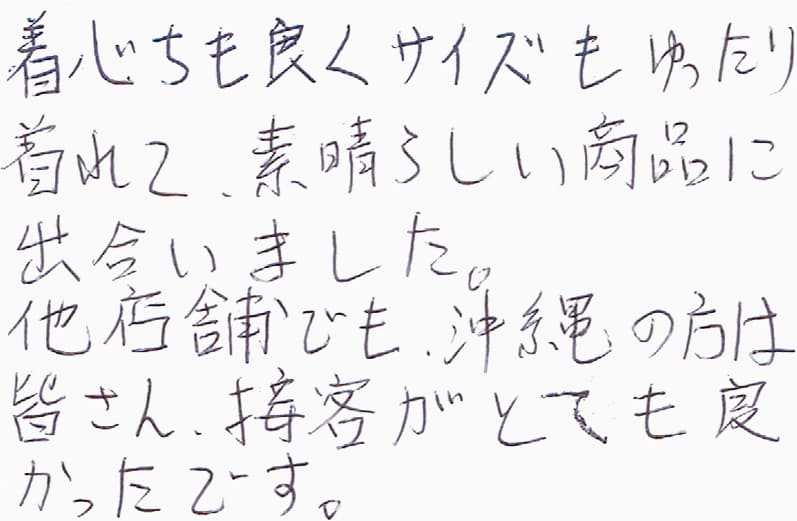 着心ちも良くサイズもゆったり
着れて、素晴らしい商品に
出合いました。
他店舗でも、沖縄の方は
皆さん、接客がとても良
かったです。